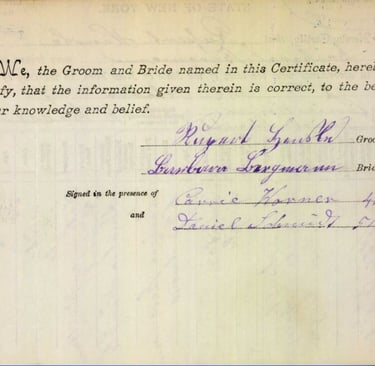 We, the Groom and Bride named in this Certificate, here
fy, that the information given therein is correct, to the be
ur knowledge and belief.
Rupert Groo
Barbara Bergmann Bri
Signed in the presence of Carrie Korner
and Daniel Schmidt